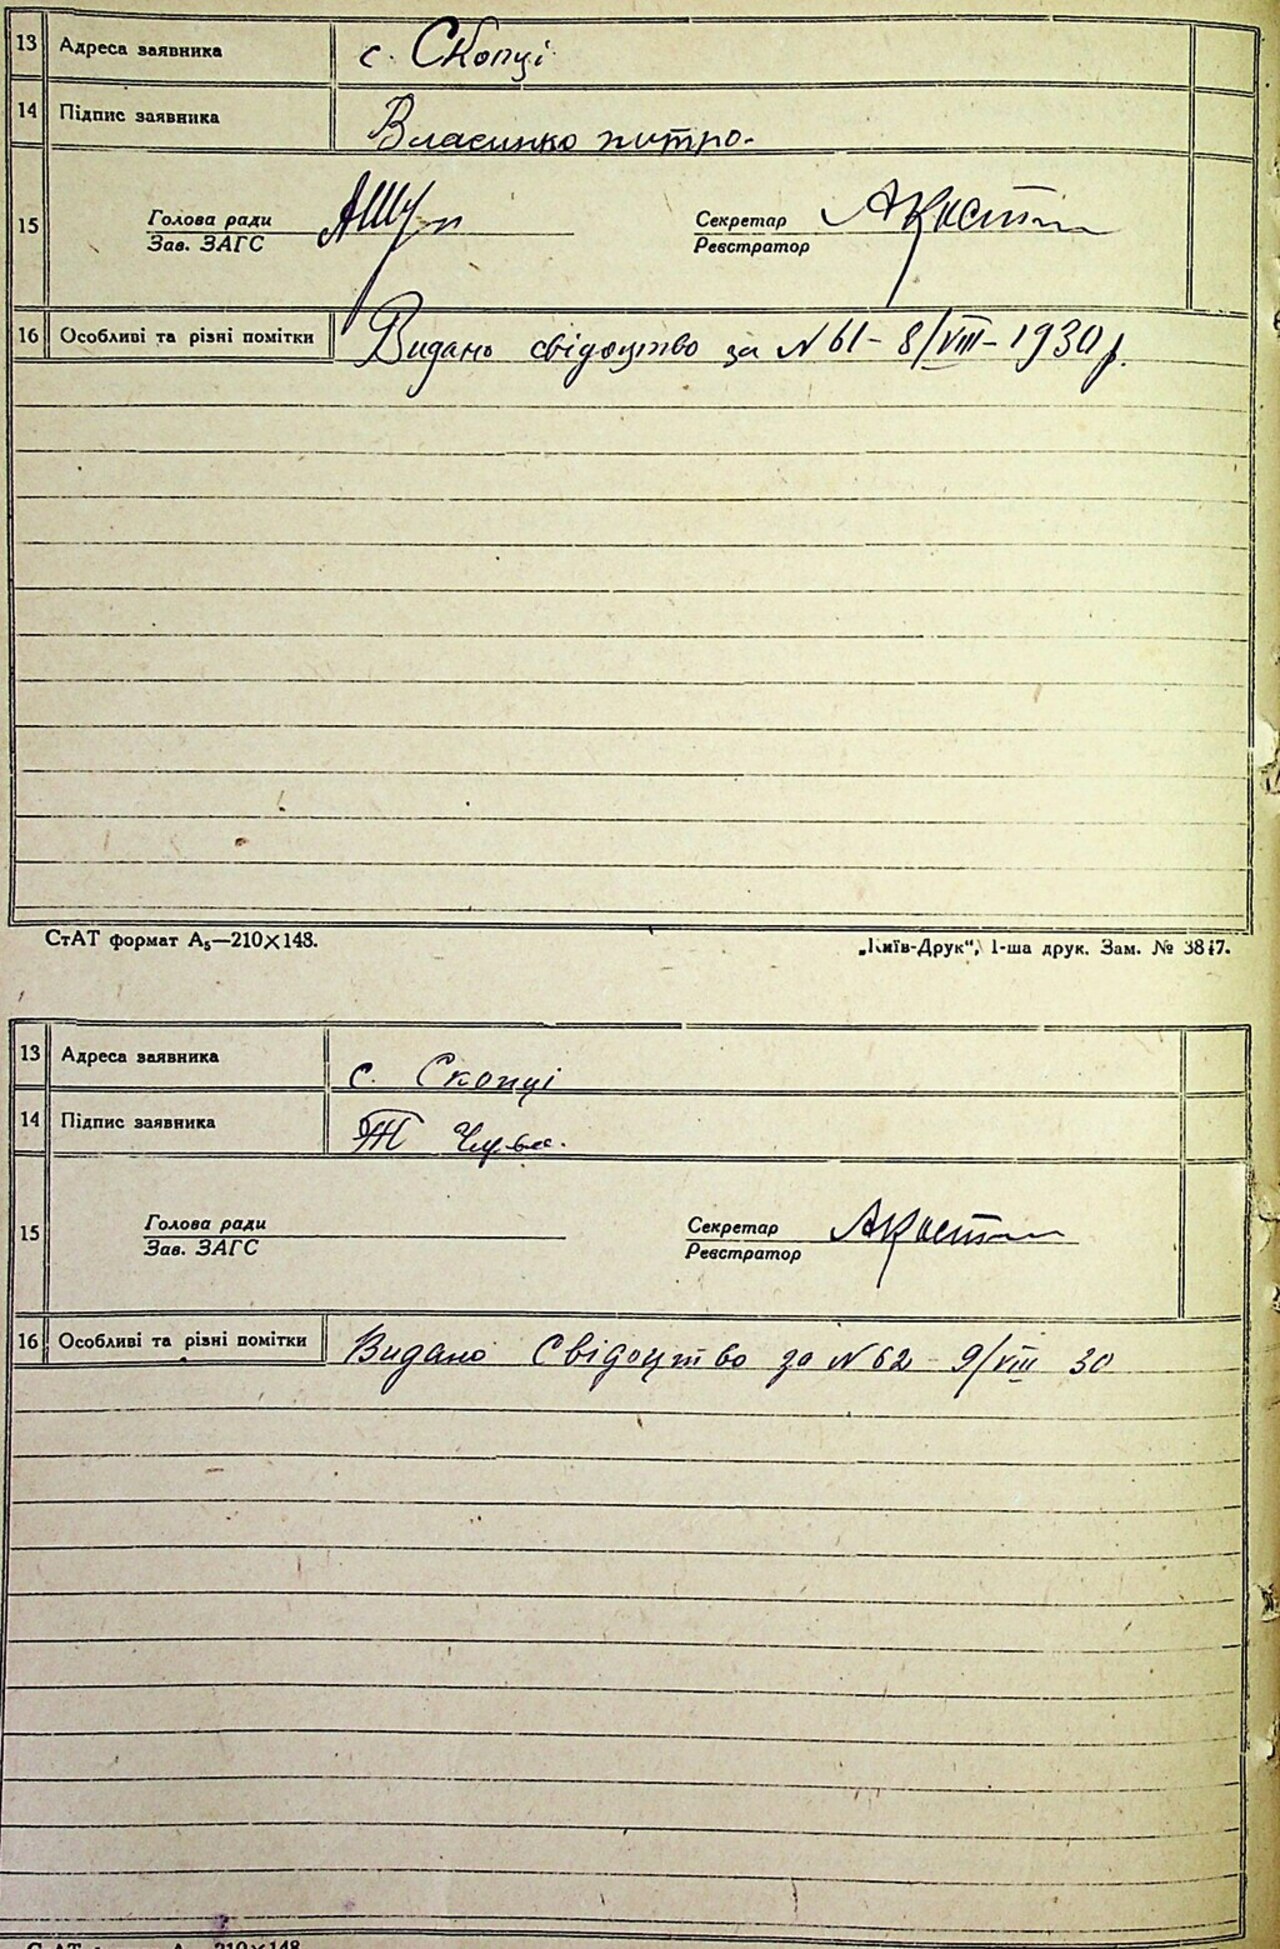 13 Адреса заявника с. Скопці
14 Підпис заявника Власинко питро.
15 Голова ради Секретар
Зав. ЗАГС Реєстратор
16 Особливі та різні помітки Видано свідоцтво за N 61 - 8/VIII - 1930 р.
СтАТ формат А₅—210×148. „Київ-Друк“, 1-ша друк. Зам. № 3847.
13 Адреса заявника с. Скопці
14 Підпис заявника
15 Голова ради Секретар
Зав. ЗАГС Реєстратор
16 Особливі та різні помітки Видано Свідоцтво за N 62 - 9/VIII 30